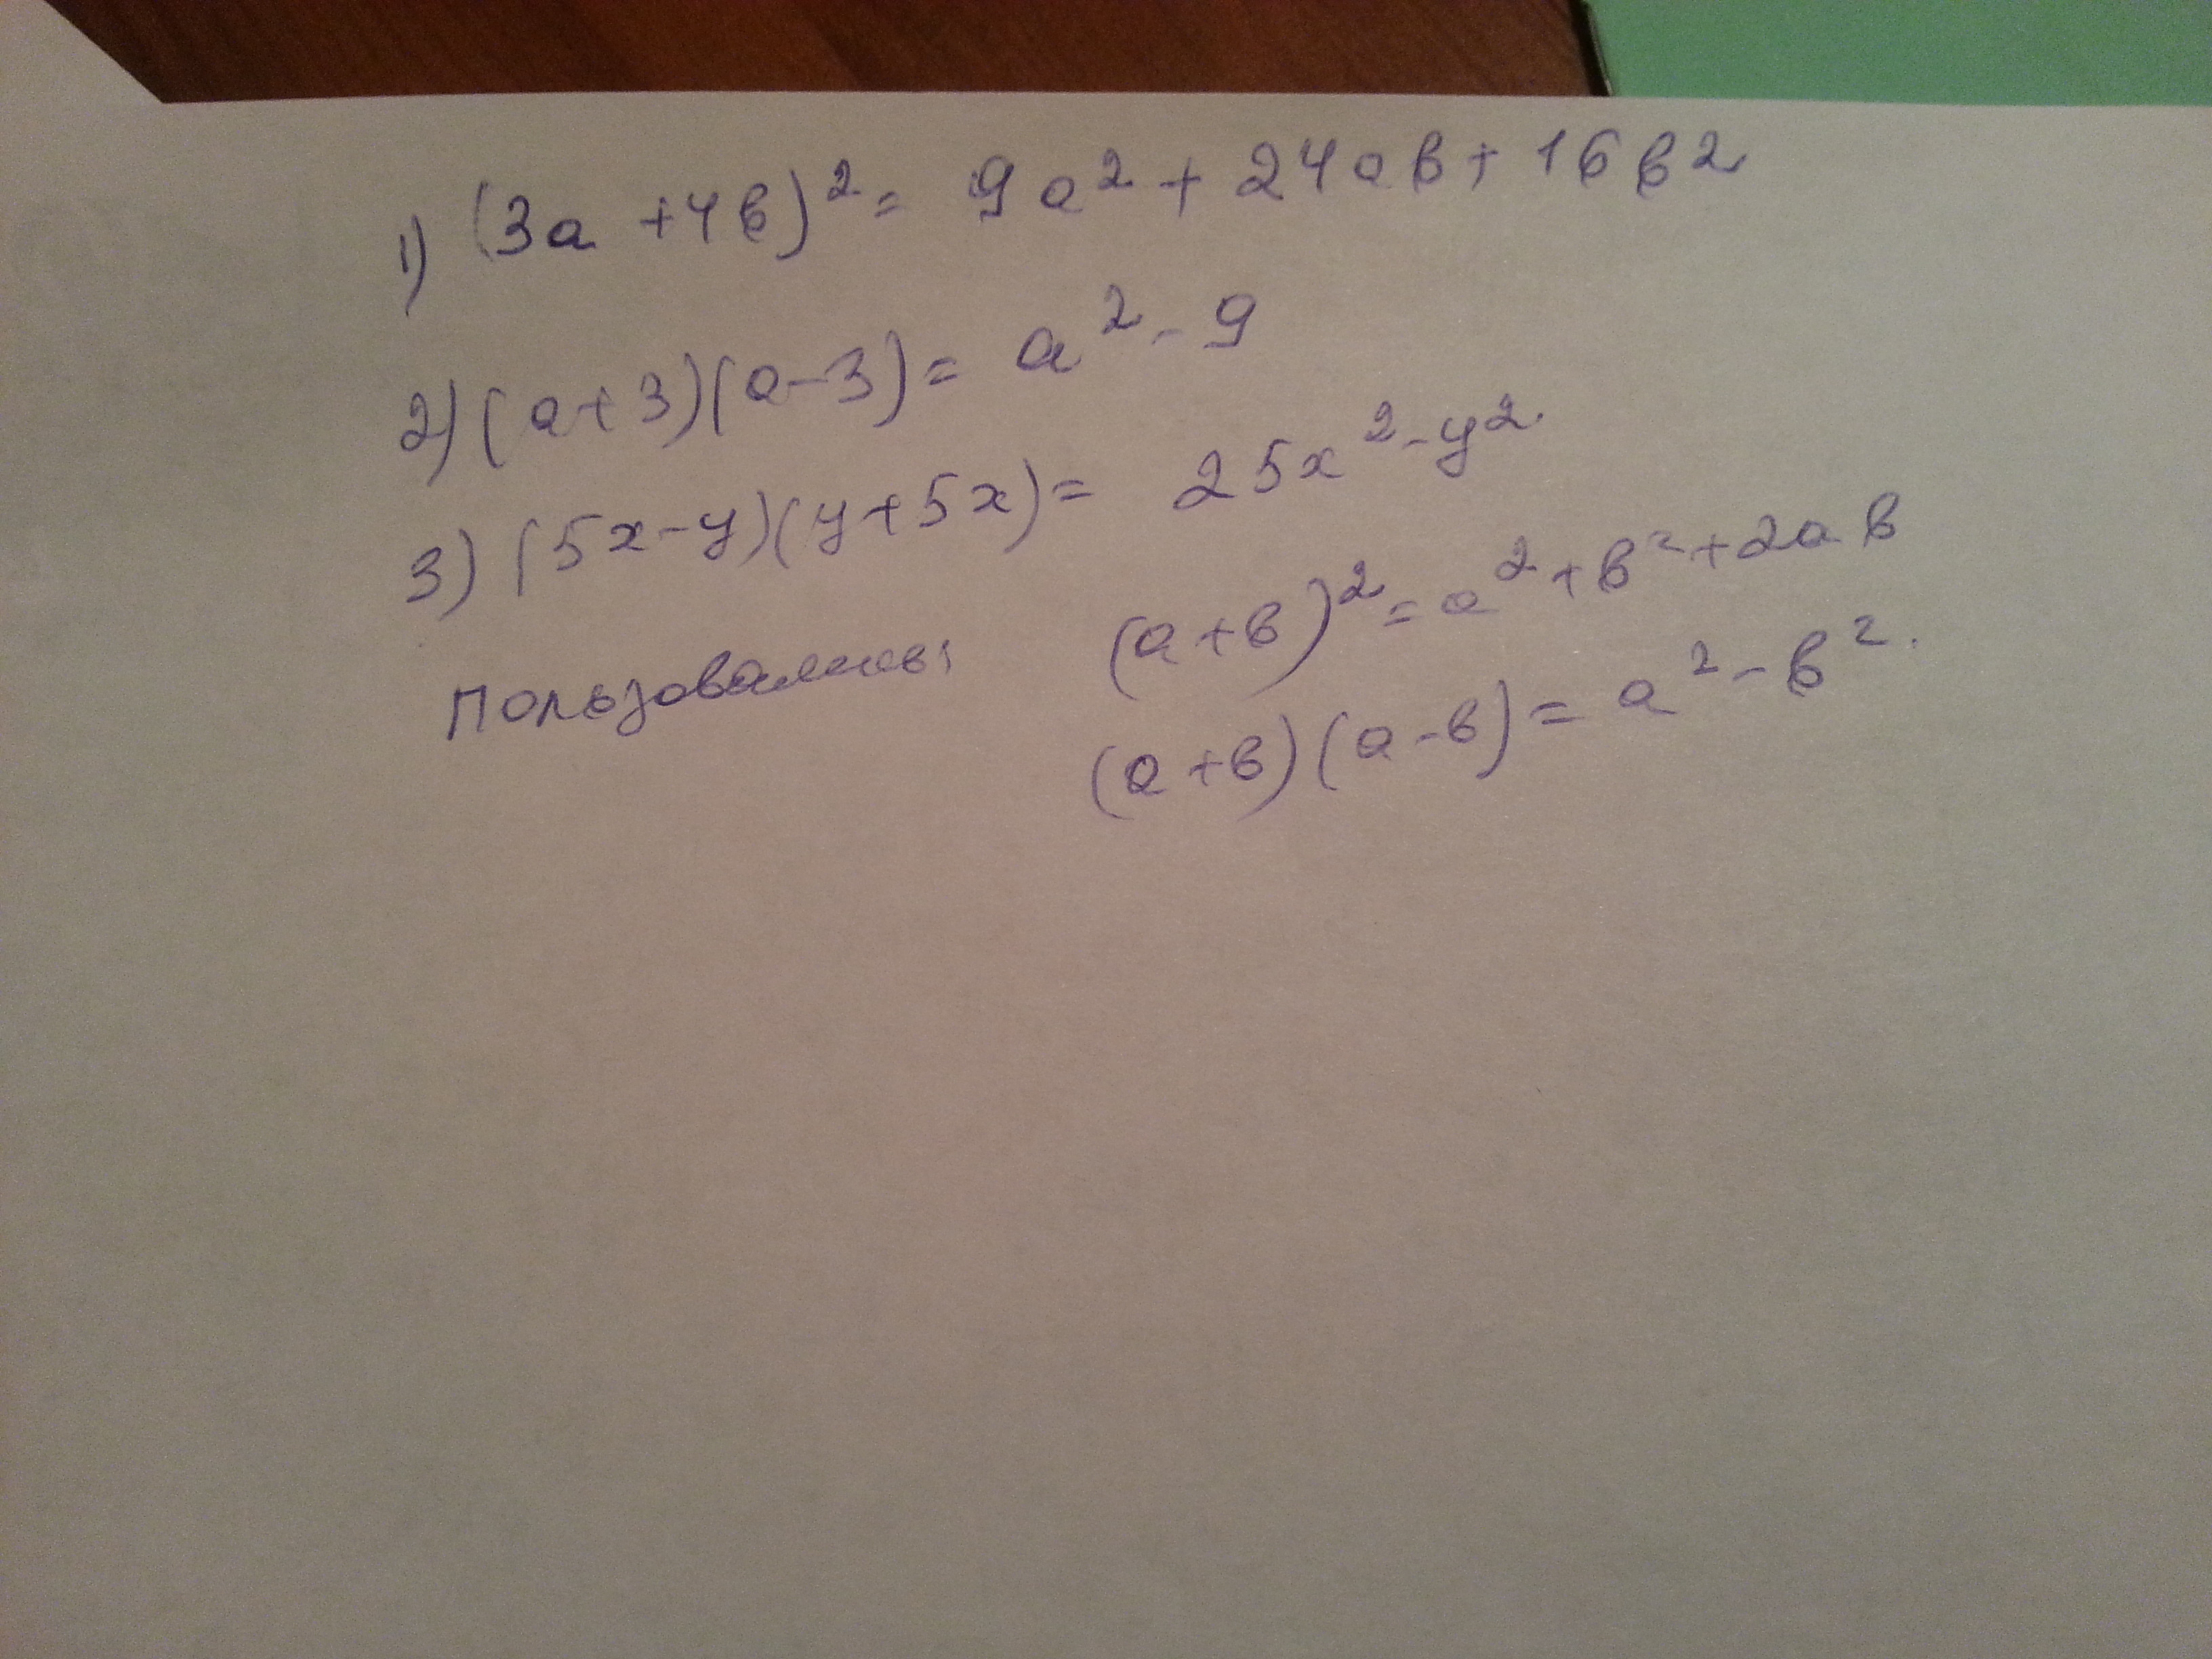 1) (3a + 4в)² = 9a² + 24aв + 16в2
2) (a+3)(a-3) = a² - 9
3) (5x-y)(y+5x) = 25x² - y².
Пользовались: (a+в)² = a² + в² + 2aв
(a+в)(a-в) = a² - в².